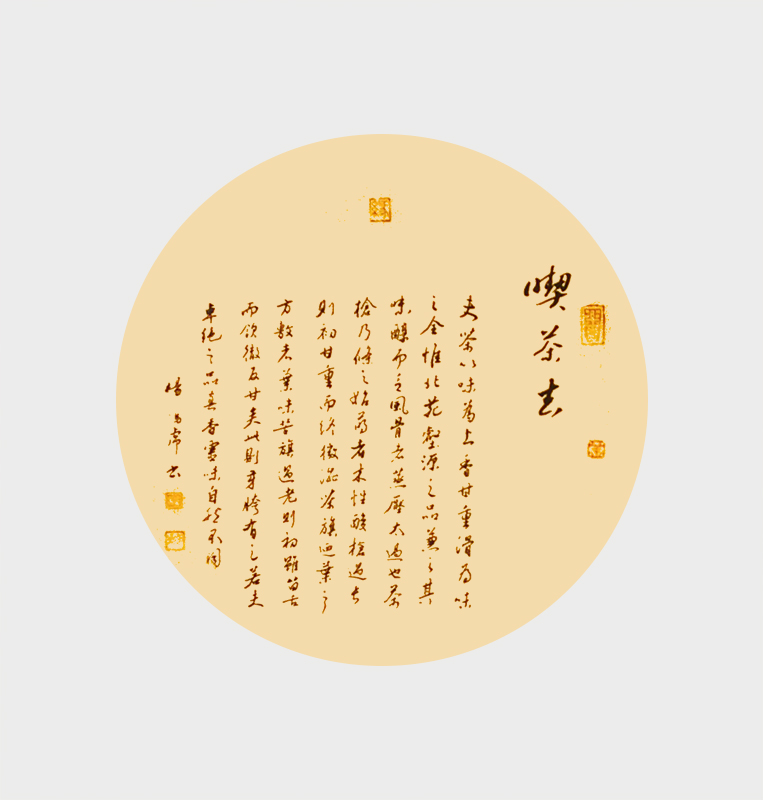 喫茶去
夫茶以味為上香甘重滑為味
之全惟北苑壑源之品兼之其
味醇而乏風骨者蒸壓太過也茶
槍乃條之始萌者木性酸槍過長
則初甘重而終微澀茶旗迺葉之
方敷者葉味苦旗過老則初雖留舌
而飲徹反甘矣此則芽胯有之若夫
卓絕之品真香靈味自然不同